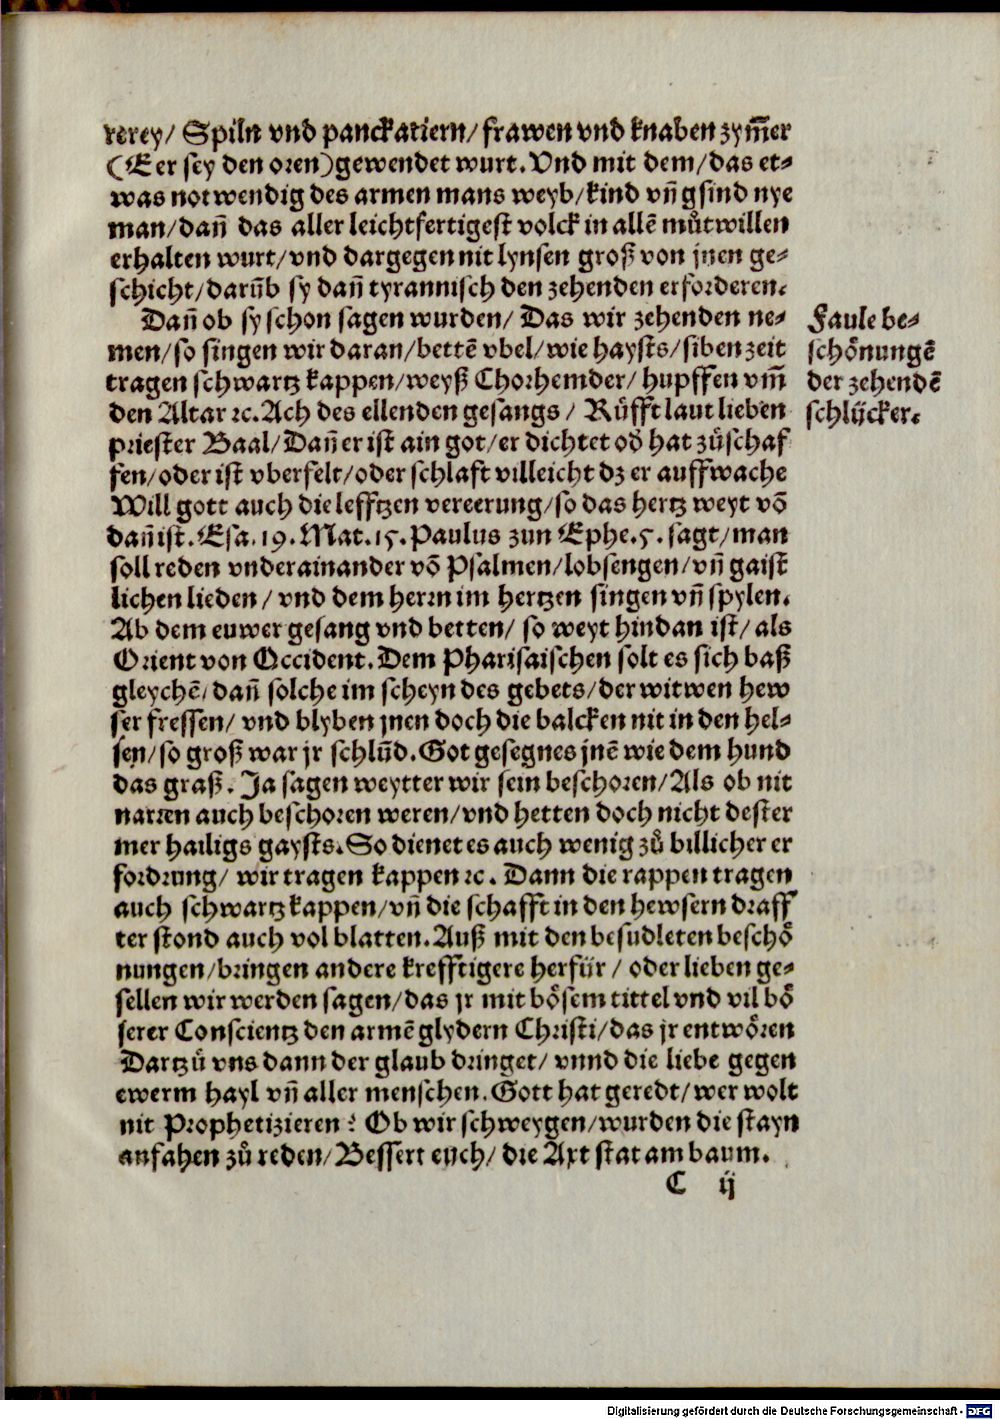 rerey/ Spiln vnd panckatiern/ frawen vnd knaben zym̅er
(Eer sey den oren) gewendet wurt. Vnd mit dem/ das et⸗
was notwendig des armen mans weyb/ kind vn̄ gsind nye
man/ dan̄ das aller leichtfertigest volck in allē můtwillen
erhalten wurt/ vnd dargegen nit lynsen groß von jnen ge⸗
schicht/ darūb sy dan̄ tyrannisch den zehenden erforderen.
Dan̄ ob sy schon sagen wurden/ Das wir zehenden ne⸗
men/ so singen wir daran/ bettē vbel/ wie haysts/ siben zeit
tragen schwartz kappen/ weyß Chorhemder/ hupffen vm̄
den Altar ꝛc. Ach des ellenden gesangs/ Růfft laut lieben
priester Baal/ Dan̄ er ist ain got/ er dichtet od̓ hat zůschaf
fen/ oder ist vberfelt/ oder schlaft villeicht dz er auffwache
Will gott auch die lefftzen vereerung/ so das hertz weyt vō
dan̄ ist. Esa. 19. Mat. 15. Paulus zun Ephe. 5. sagt/ man
soll reden vnderainander vō Psalmen/ lobsengen/ vn̄ gaist
lichen lieden/ vnd dem herrn im hertzen singen vn̄ spylen.
Ab dem euwer gesang vnd betten/ so weyt hindan ist/ als
Orient von Occident. Dem Pharisaischen solt es sich baß
gleychē/ dan̄ solche im scheyn des gebets/ der witwen hew
ser fressen/ vnd blyben jnen doch die balcken nit in den hel⸗
sen/ so groß war jr schlūd. Got gesegnes jnē wie dem hund
das graß. Ja sagen weytter wir sein beschoren/ Als ob nit
narren auch beschoren weren/ vnd hetten doch nicht dester
mer hailigs gaysts. So dienet es auch wenig zů billicher er
fordrung/ wir tragen kappen ꝛc. Dann die rappen tragen
auch schwartz kappen/ vn̄ die schafft in den hewsern draff
ter stond auch vol blatten. Auß mit den besudleten beschö
nungen/ bringen andere krefftigere herfür/ oder lieben ge⸗
sellen wir werden sagen/ das jr mit bösem tittel vnd vil bö
serer Conscientz den armē glydern Christi/ das jr entwören
Dartzů vns dann der glaub dringet/ vnnd die liebe gegen
ewerm hayl vn̄ aller menschen. Gott hat geredt/ wer wolt
nit Prophetizieren? Ob wir schweygen/ wurden die stayn
anfahen zů reden/ Bessert euch/ die Axt stat am baum.
C ij
Faule be⸗
schönungē
der zehendē
schlücker.
Digitalisierung gefördert durch die Deutsche Forschungsgemeinschaft - DFG